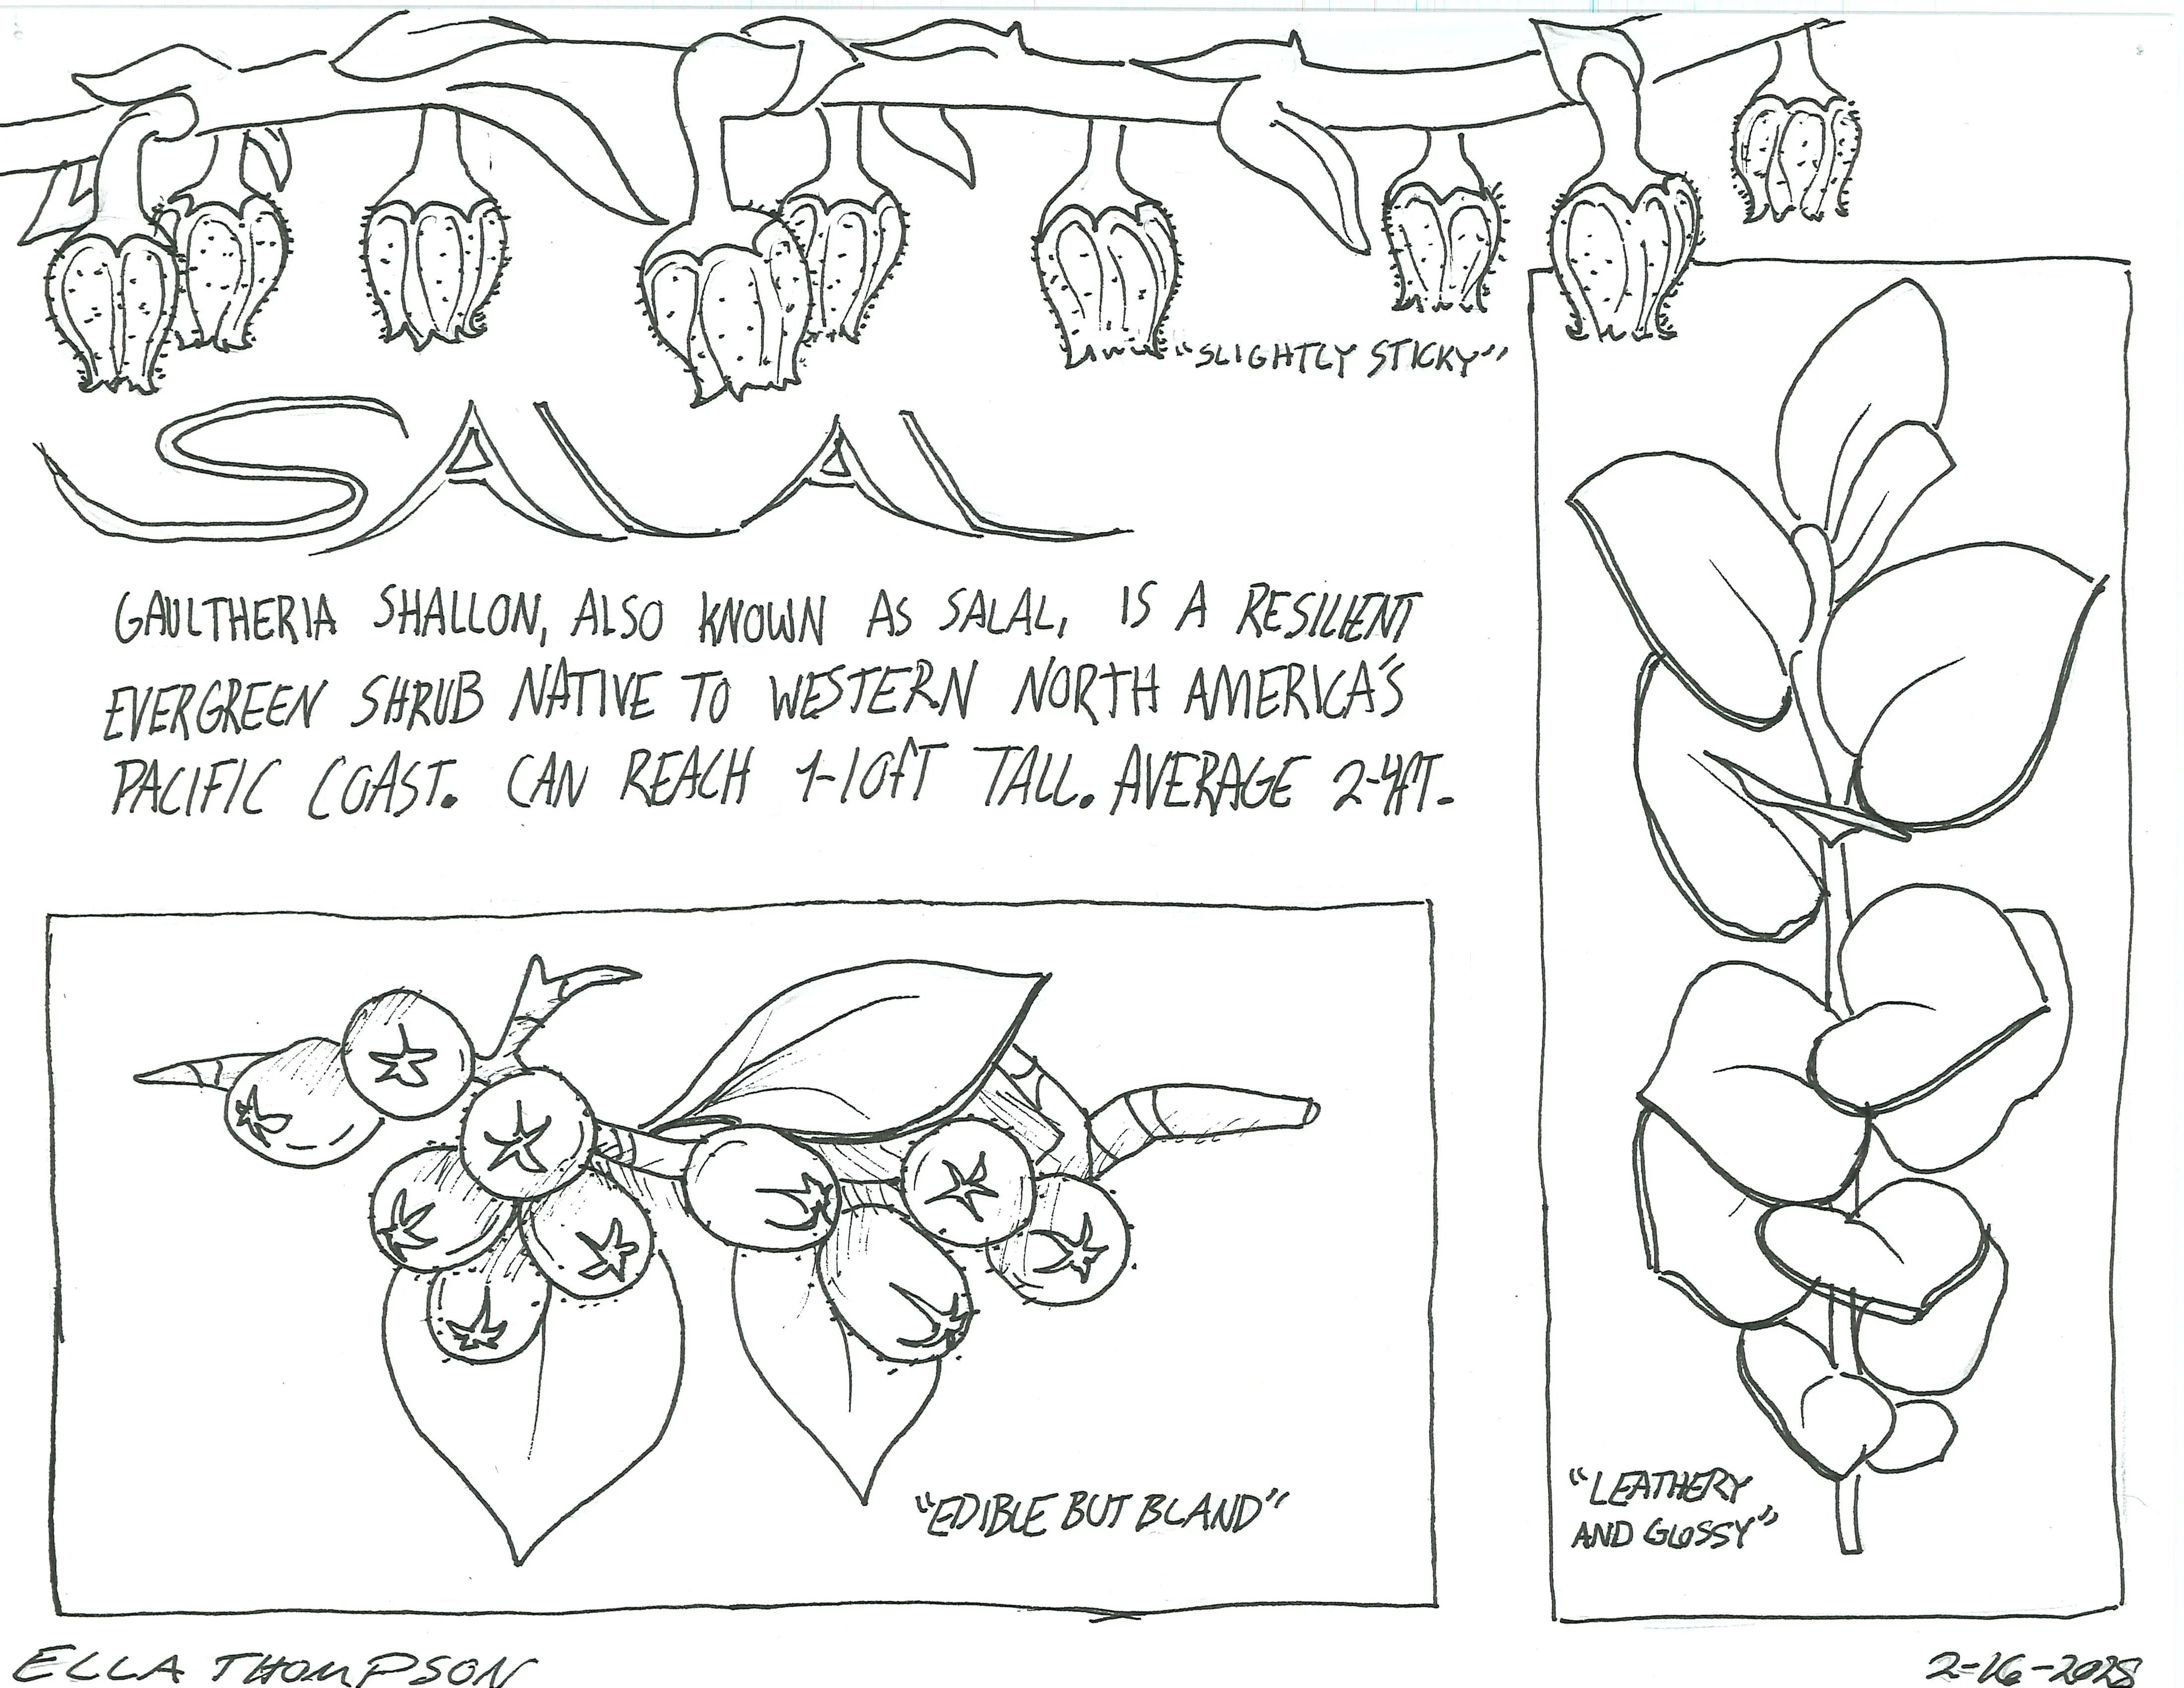 "SLIGHTLY STICKY"
SALAL
GAULTHERIA SHALLON, ALSO KNOWN AS SALAL, IS A RESILIENT
EVERGREEN SHRUB NATIVE TO WESTERN NORTH AMERICA'S
PACIFIC COAST. CAN REACH 1-10FT TALL. AVERAGE 2-4FT.
"EDIBLE BUT BLAND"
"LEATHERY
AND GLOSSY"
ELLA THOMPSON
2-16-2025